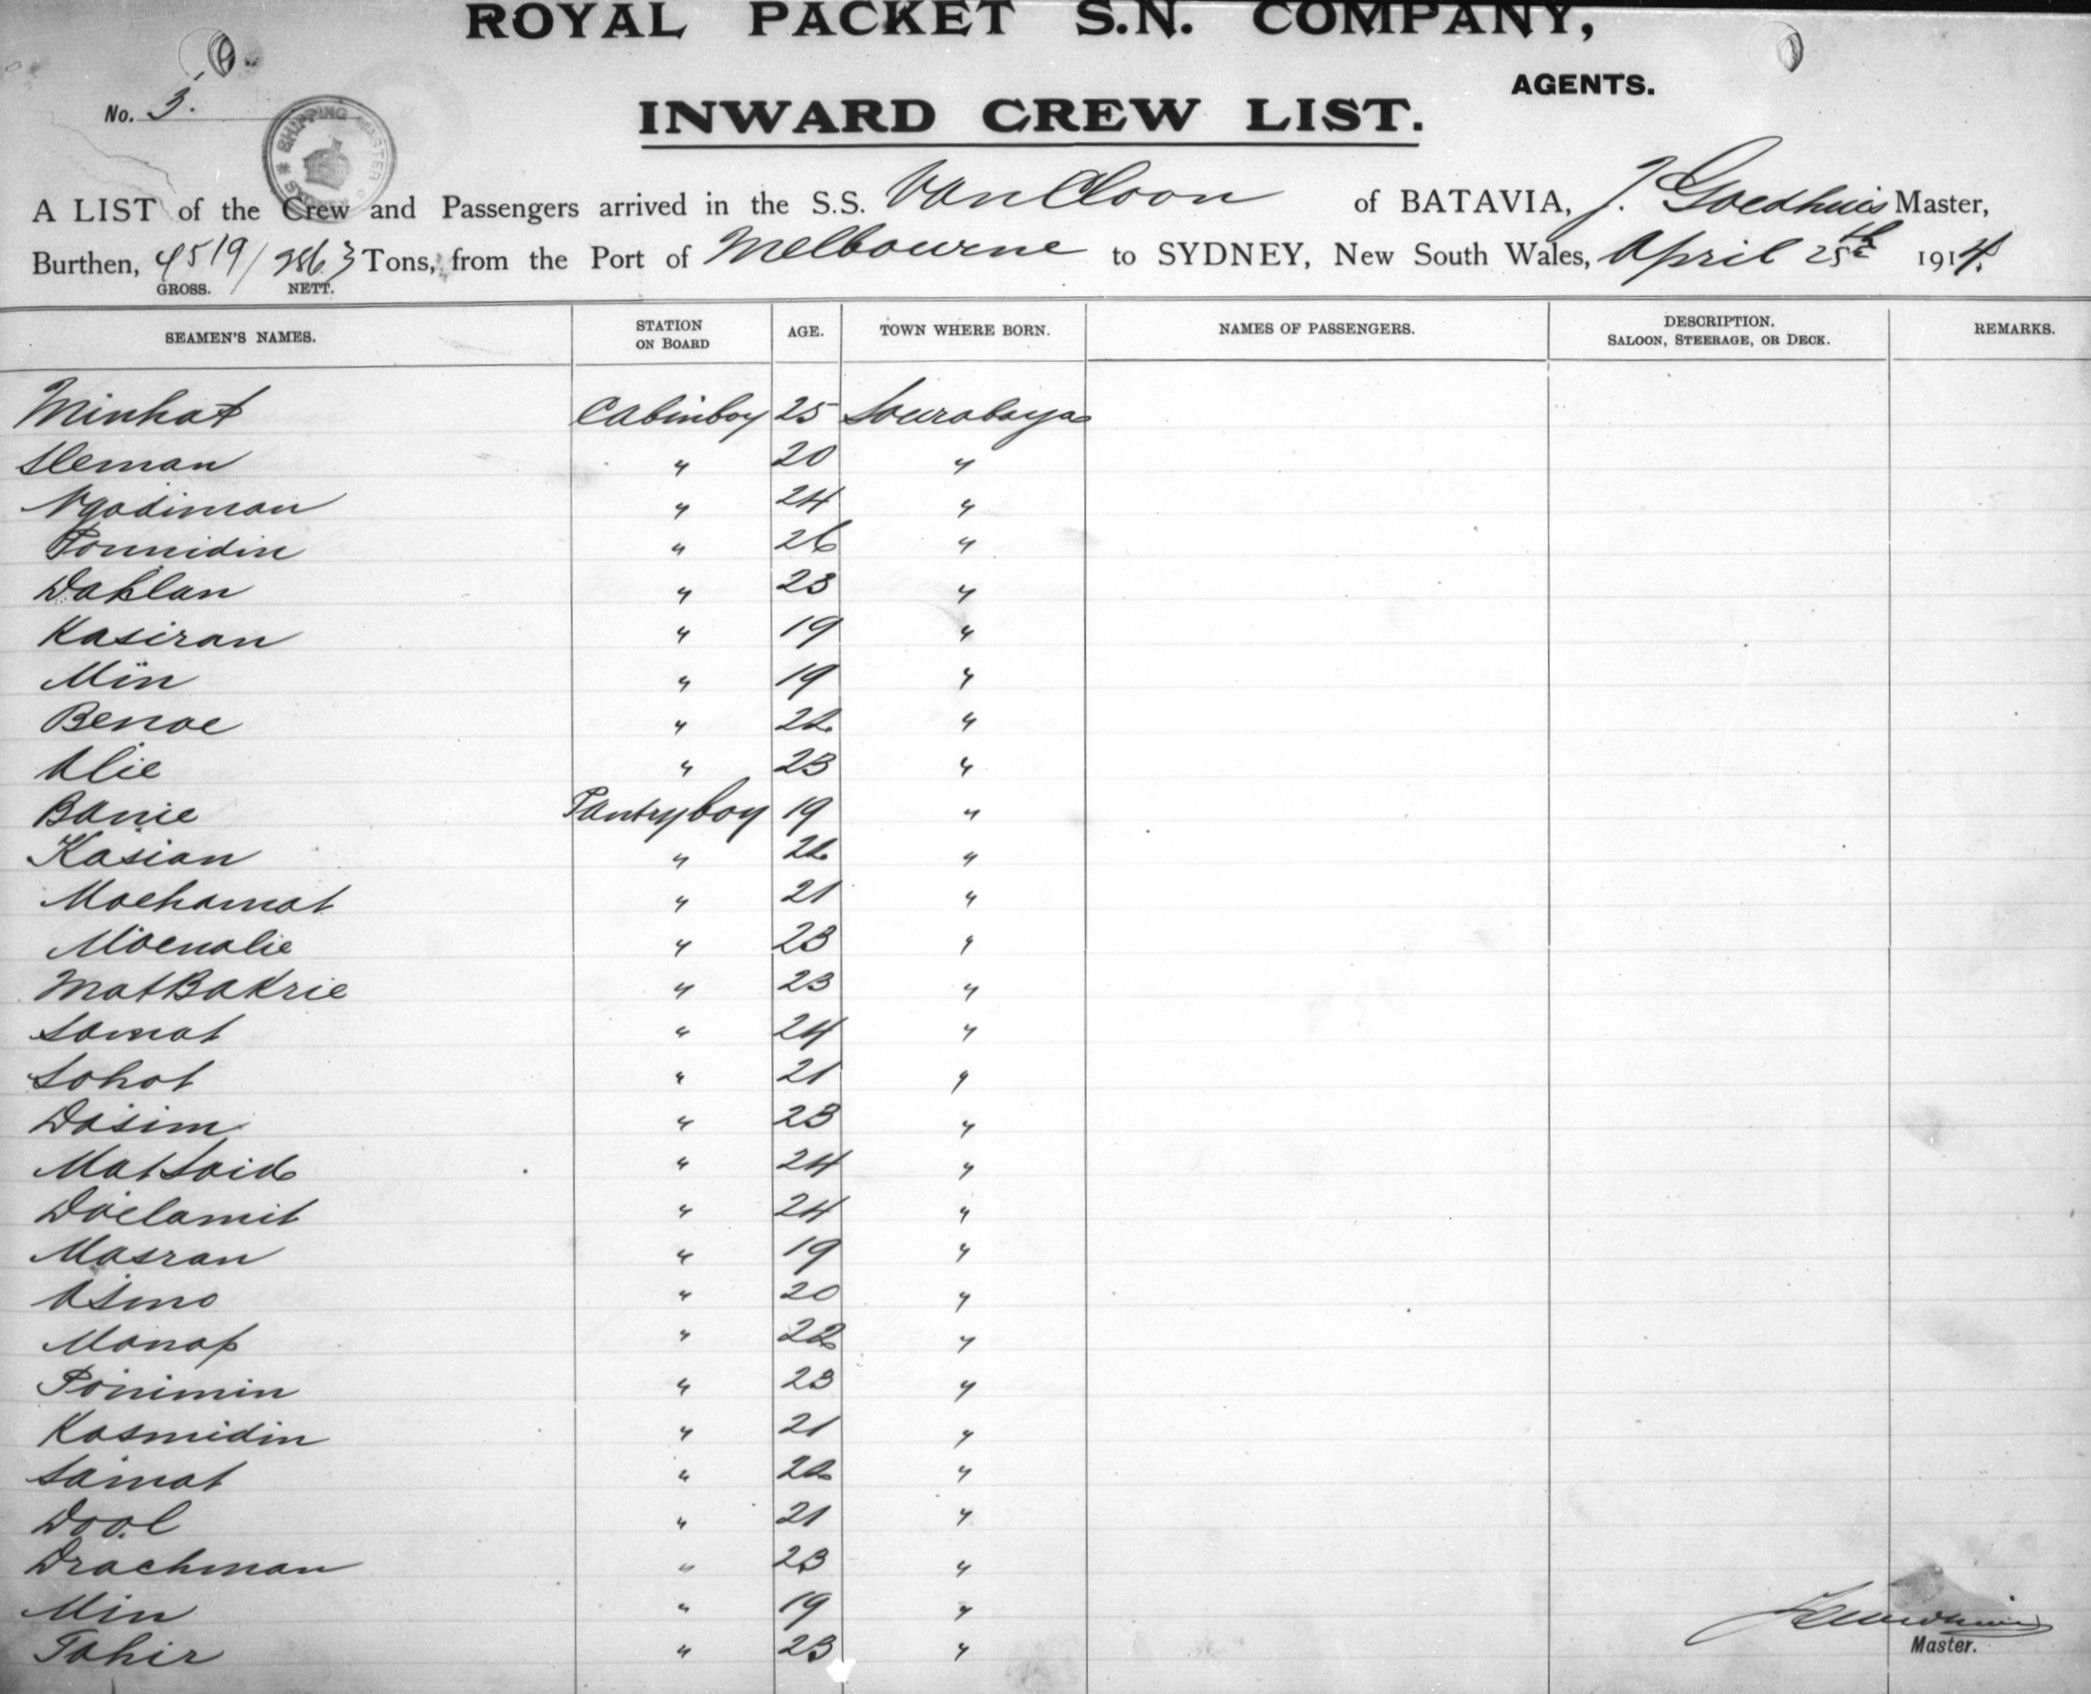 ROYAL PACKET S.N. COMPANY,
AGENTS.
No. 3.
INWARD CREW LIST.
SHIPPING MASTER
A LIST of the Crew and Passengers arrived in the S.S. Van Cloon of BATAVIA, J. Goedhuis Master,
Burthen, 4519/2863 Tons, from the Port of Melbourne to SYDNEY, New South Wales, April 25th 1914.
GROSS. NETT.
SEAMEN'S NAMES. STATION ON BOARD AGE. TOWN WHERE BORN. NAMES OF PASSENGERS. DESCRIPTION. SALOON, STEERAGE, OR DECK. REMARKS.
Minhat Cabinboy 25 Sourabaya
Sleman " 20 "
Ngadiman " 24 "
Ponnidin " 26 "
Dahlan " 23 "
Kasiran " 19 "
Min " 19 "
Benoe " 22 "
Alie " 23 "
Banie Pantryboy 19 "
Kasian " 22 "
Mochamat " 21 "
Moenalie " 23 "
Mat Bakrie " 23 "
Samat " 24 "
Sahot " 21 "
Dasim " 23 "
Mat Said " 24 "
Doelamit " 24 "
Masran " 19 "
Asmo " 20 "
Manap " 22 "
Ponimin " 23 "
Kasmidin " 21 "
Samat " 22 "
Dool " 21 "
Drachman " 23 "
Min " 19 "
Tahir " 23 "
Master.